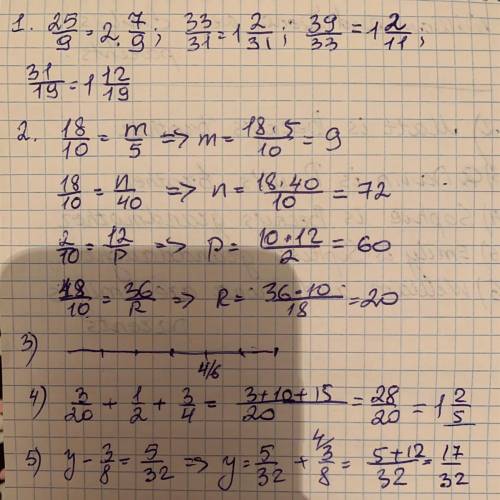 1. 25/9 = 2 7/9; 33/31 = 1 2/31; 39/33 = 1 2/11;
31/19 = 1 12/19
2. 18/10 = m/5 => m = 18·5/10 = 9
18/10 = n/40 => n = 18·40/10 = 72
2/10 = 12/p => p = 10·12/2 = 60
18/10 = 36/R => R = 36·10/18 = 20
3) 4/6
4) 3/20 + 1/2 + 3/4 = 3+10+15/20 = 28/20 = 1 2/5
5) y - 3/8 = 5/32 => y = 5/32 + 4/ 3/8 = 5+12/32 = 17/32